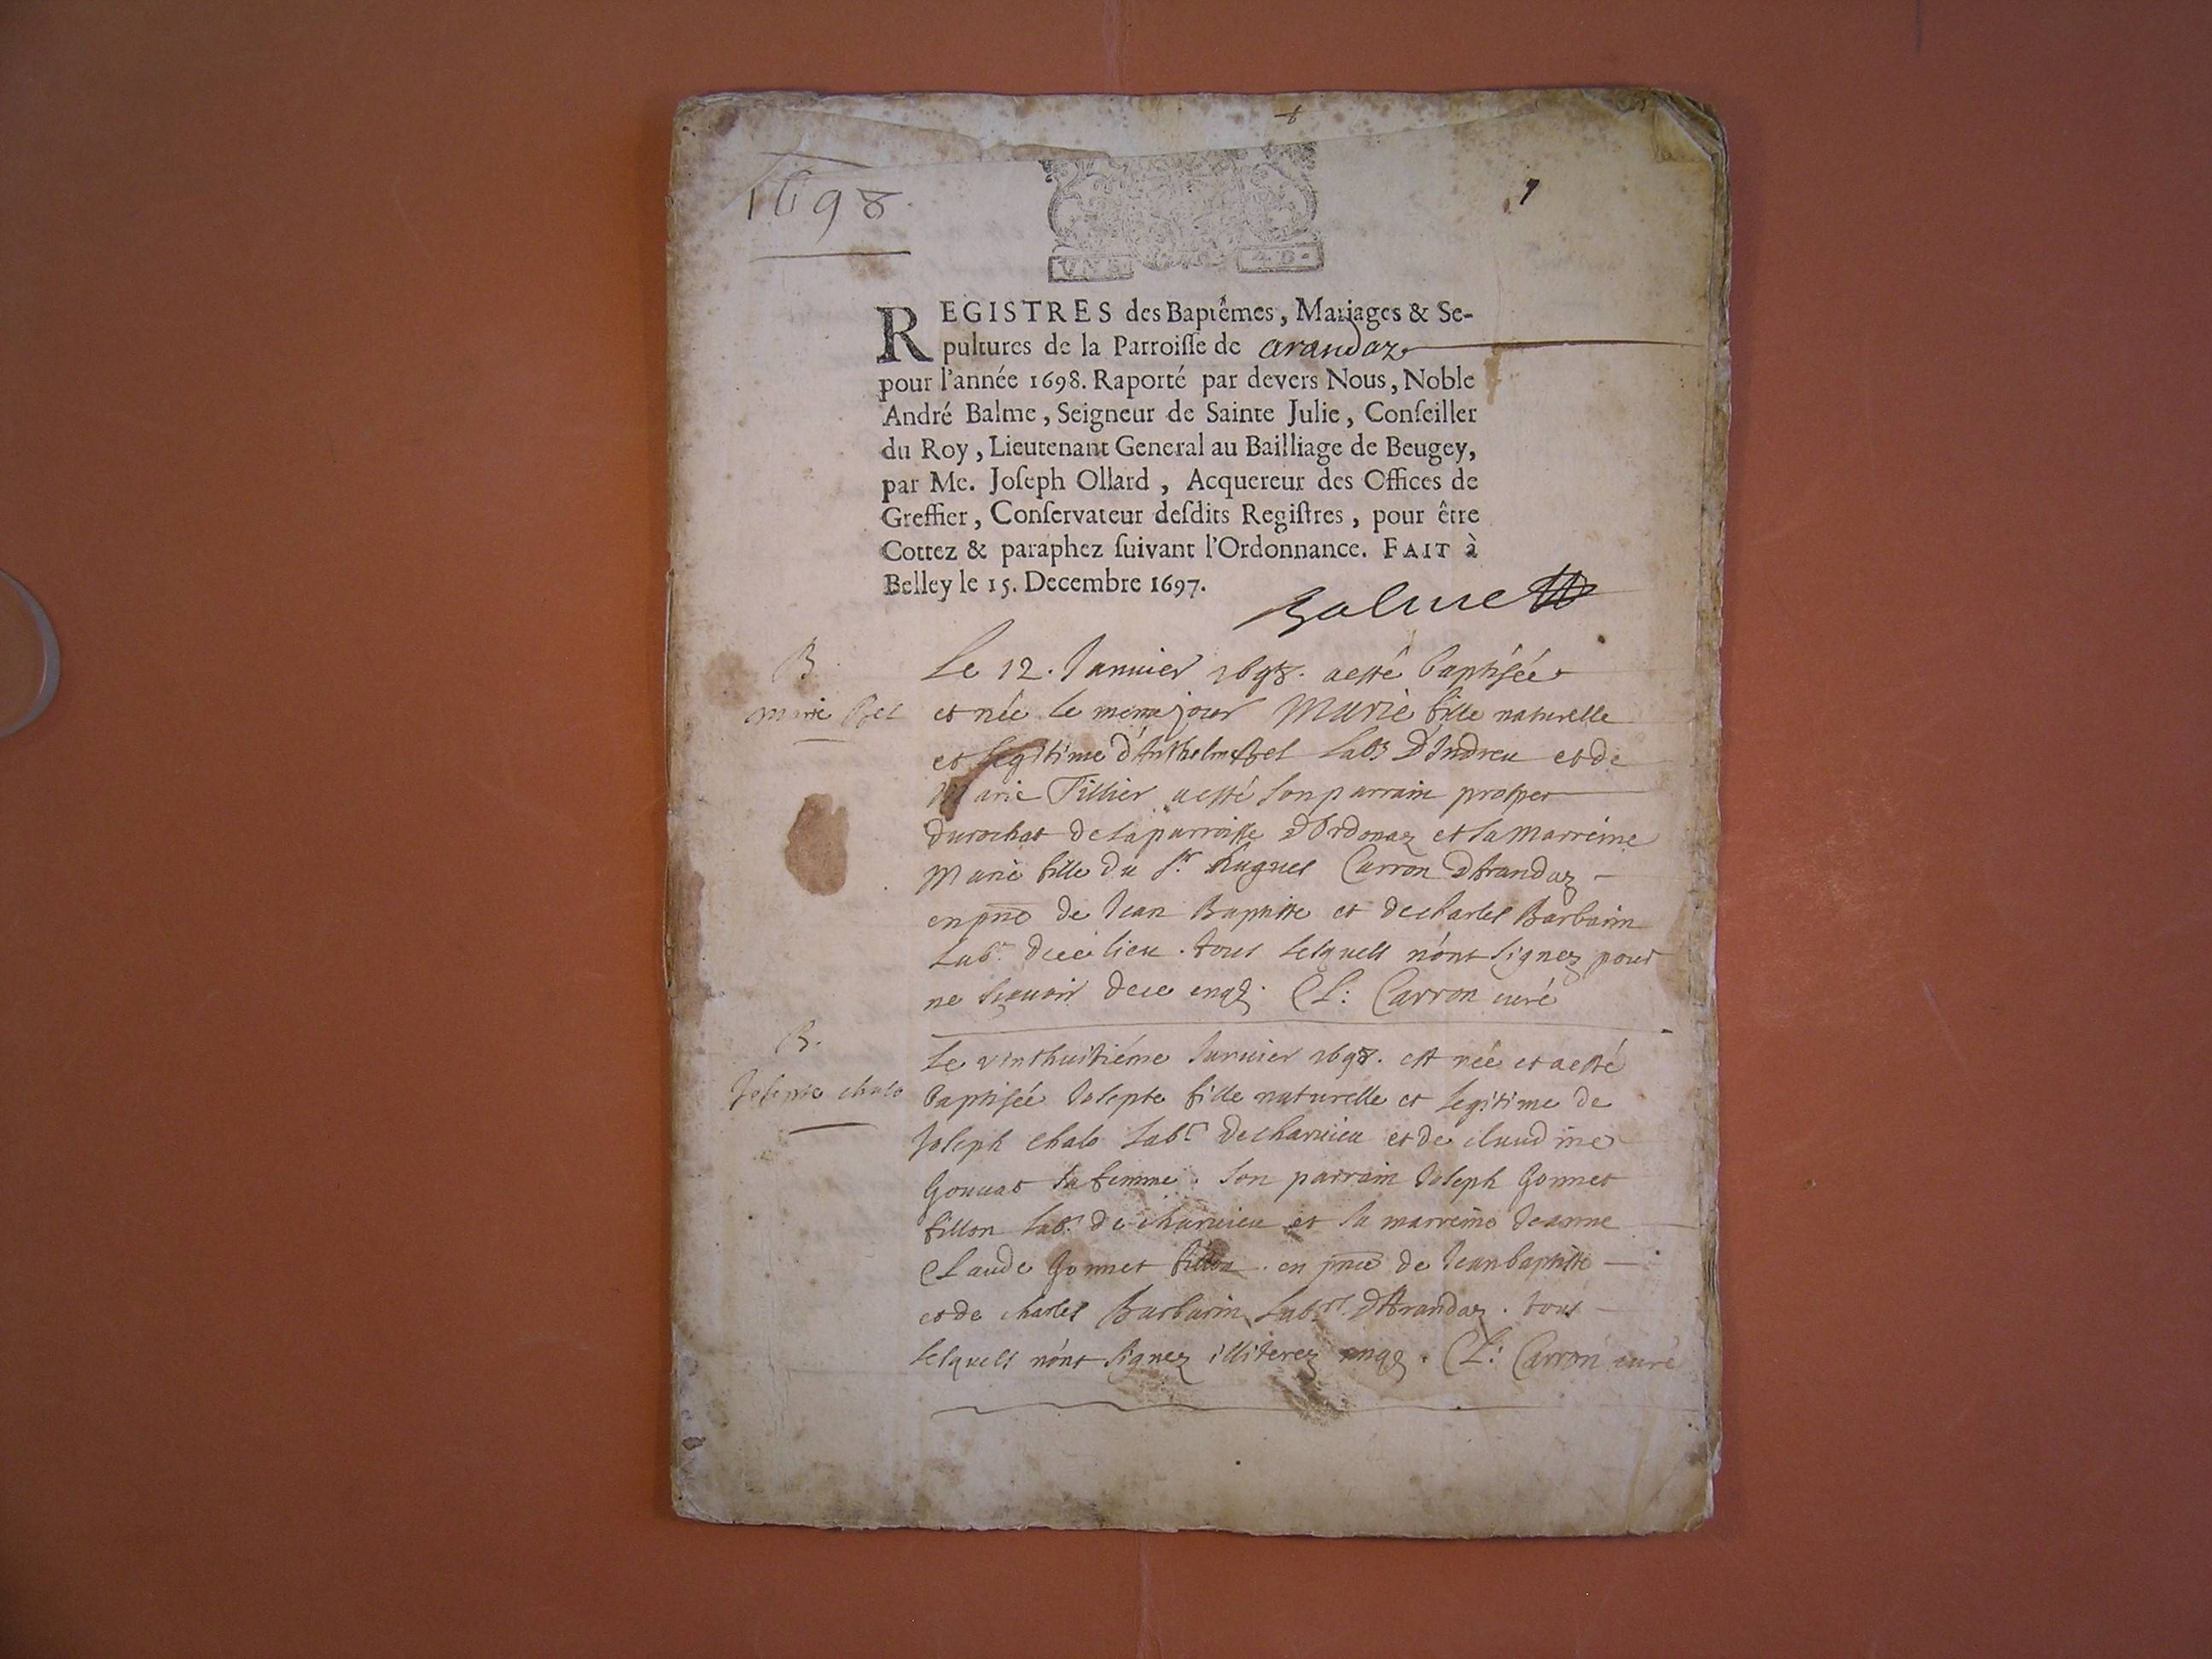 1698.
1
REGISTRES des Baptêmes, Mariages & Se-
pultures de la Parroisse de arandaz
pour l'année 1698. Raporté par devers Nous, Noble
André Balme, Seigneur de Sainte Julie, Conseiller
du Roy, Lieutenant General au Bailliage de Beugey,
par Me. Joseph Ollard, Acquereur des Offices de
Greffier, Conservateur desdits Registres, pour être
Cottez & paraphez suivant l'Ordonnance. FAIT à
Belley le 15. Decembre 1697.
Balme
B.
Marie
Le 12. Janvier 1698. a esté baptisée
et née le meme jour Marie fille naturelle
et legitime d'Anthelme labr D'Indrieu et de
Marie Tillier a esté son parrain prosper
durochat de la parroisse d'Ordonaz et la marreine
Marie fille du Sr. hugues Carron d'Arandaz
en pnce de Jean Baptiste et de charles Barbarin
Labr. de ce lieu. tous lesquels n'ont signez pour
ne sçavoir de ce enqz. Cl: Carron curé
B.
Josepte chalo
Le vinthuitiéme Janvier 1698. est née et a esté
baptisée Josepte fille naturelle et legitime de
Joseph chalo labr de charvieu et de claudine
Gouvat sa femme. son parrain Joseph Gonnet
fillon labr. de charvieu et sa marreine Jeanne
Claude Gonnet fillon. en pnce de Jean baptiste
et de charles Barbarin Labrs. d'Arandaz. tous
lesquels n'ont signez illiterez enqz. Cl: Carron curé